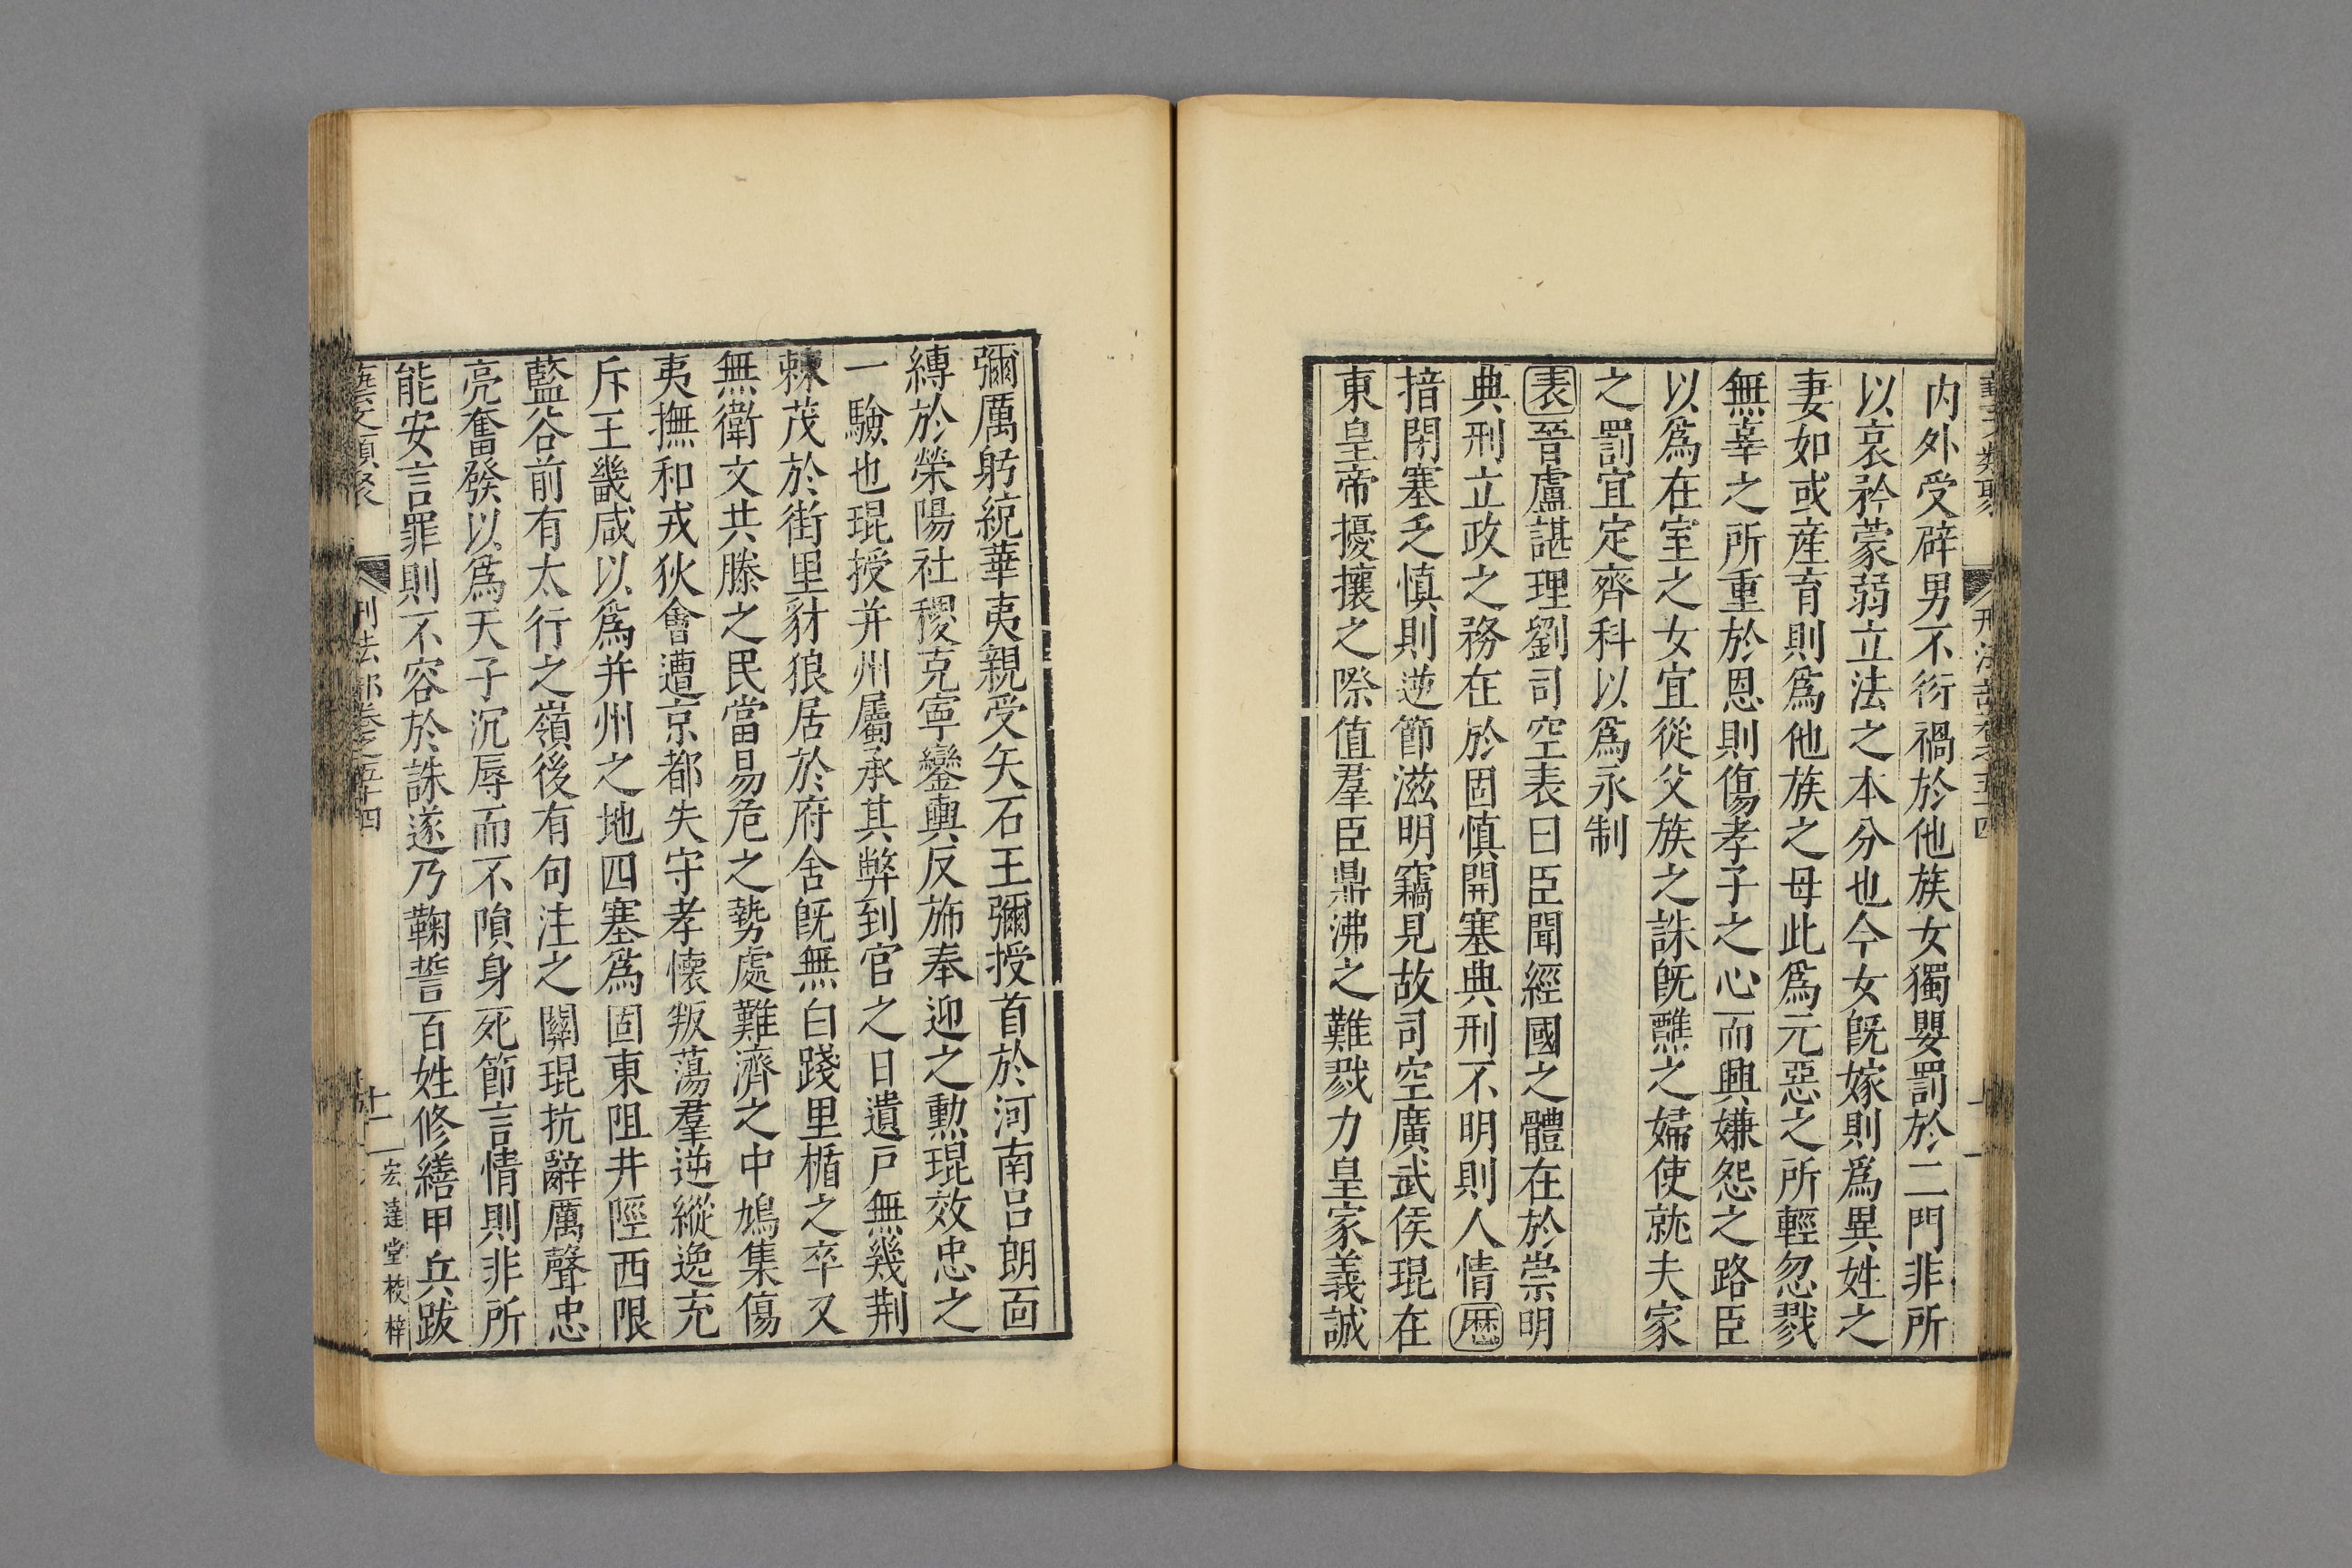 内外受辟男不衍禍於他族女獨嬰罰於二門非所
以哀矜蒙弱立法之本分也今女旣嫁則爲異姓之
妻如或産育則爲他族之母此爲元惡之所輕忽戮
無辜之所重於恩則傷孝子之心而興嫌怨之路臣
以爲在室之女宜從父族之誅旣醮之婦使就夫家
之罰宜定齊科以爲永制
表晉盧諶理劉司空表曰臣聞經國之體在於崇明
典刑立政之務在於固慎開塞典刑不明則人情厯
揞閉塞乏慎則逆節滋明竊見故司空廣武侯琨在
東皇帝擾攘之際值羣臣鼎沸之難戮力皇家義誠
彌厲躬統華夷親受矢石王彌授首於河南呂朗面
縛於榮陽社稷克寧鑾輿反斾奉迎之勲琨效忠之
一驗也琨授并州屬承其弊到官之日遺戸無幾荆
棘茂於街里豺狼居於府舍旣無白踐里楯之卒又
無衛文共滕之民當易危之勢處難濟之中鳩集傷
夷撫和戎狄會遭京都失守孝懷叛蕩羣逆縱逸充
斥王畿咸以爲并州之地四塞爲固東阻井陘西限
藍谷前有太行之嶺後有句注之關琨抗辭厲聲忠
亮奮發以爲天子沉辱而不隕身死節言情則非所
能安言罪則不容於誅遂乃鞠誓百姓修繕甲兵跋
藝文類聚 刑法部卷之五十四 十一 宏達堂校梓